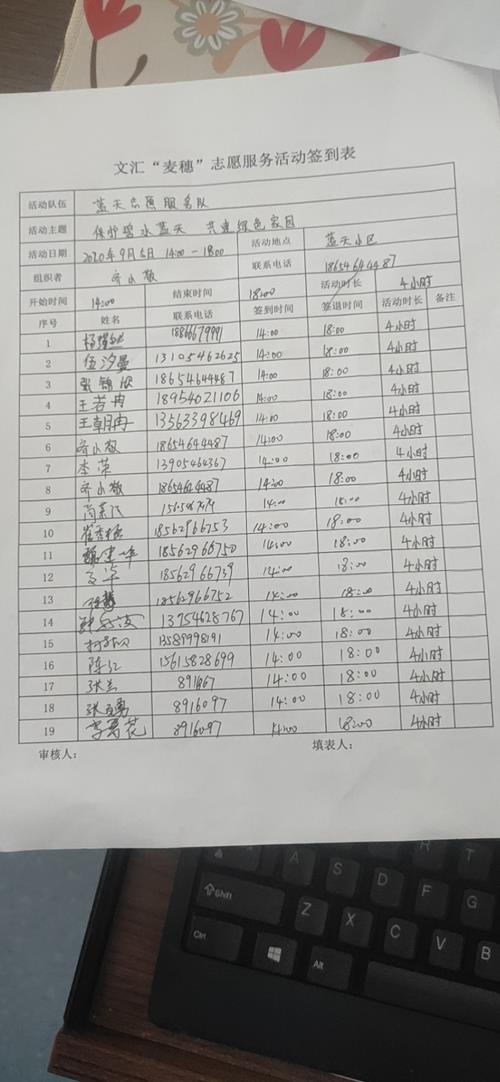 文汇“麦穗”志愿服务活动签到表
活动队伍 蓝天志愿服务队
活动主题 保护碧水蓝天 共建绿色家园
活动日期 2020年9月5日 14:00-18:00 活动地点 蓝天小区
组织者 齐小敬 联系电话 18654644487
开始时间 14:00 结束时间 18:00 活动时长 4小时
序号 姓名 联系电话 签到时间 签退时间 活动时长 备注
1 14:00 18:00 4小时
2 伍汐曼 13105462625 14:00 18:00 4小时
3 18654644487 14:00 18:00 4小时
4 王若冉 18954021106 14:00 18:00 4小时
5 王朝冉 13563398469 14:00 18:00 4小时
6 齐小敬 18654644487 14:00 18:00 4小时
7 李荣 13905464367 14:00 18:00 4小时
8 齐小敬 18654644487 14:00 18:00 4小时
9 14:00 18:00 4小时
10 18562966753 14:00 18:00 4小时
11 魏建华 18562966750 14:00 18:00 4小时
12 18562966739 14:00 18:00 4小时
13 18562966752 14:00 18:00 4小时
14 13754628767 14:00 18:00 4小时
15 13589998191 14:00 18:00 4小时
16 陈江 15615828699 14:00 18:00 4小时
17 张兰 14:00 18:00 4小时
18 8916097 14:00 18:00 4小时
19 8916097 14:00 18:00 4小时
审核人： 填表人：
R T
A S D F G
Shift Z X C V B
Ctrl Alt